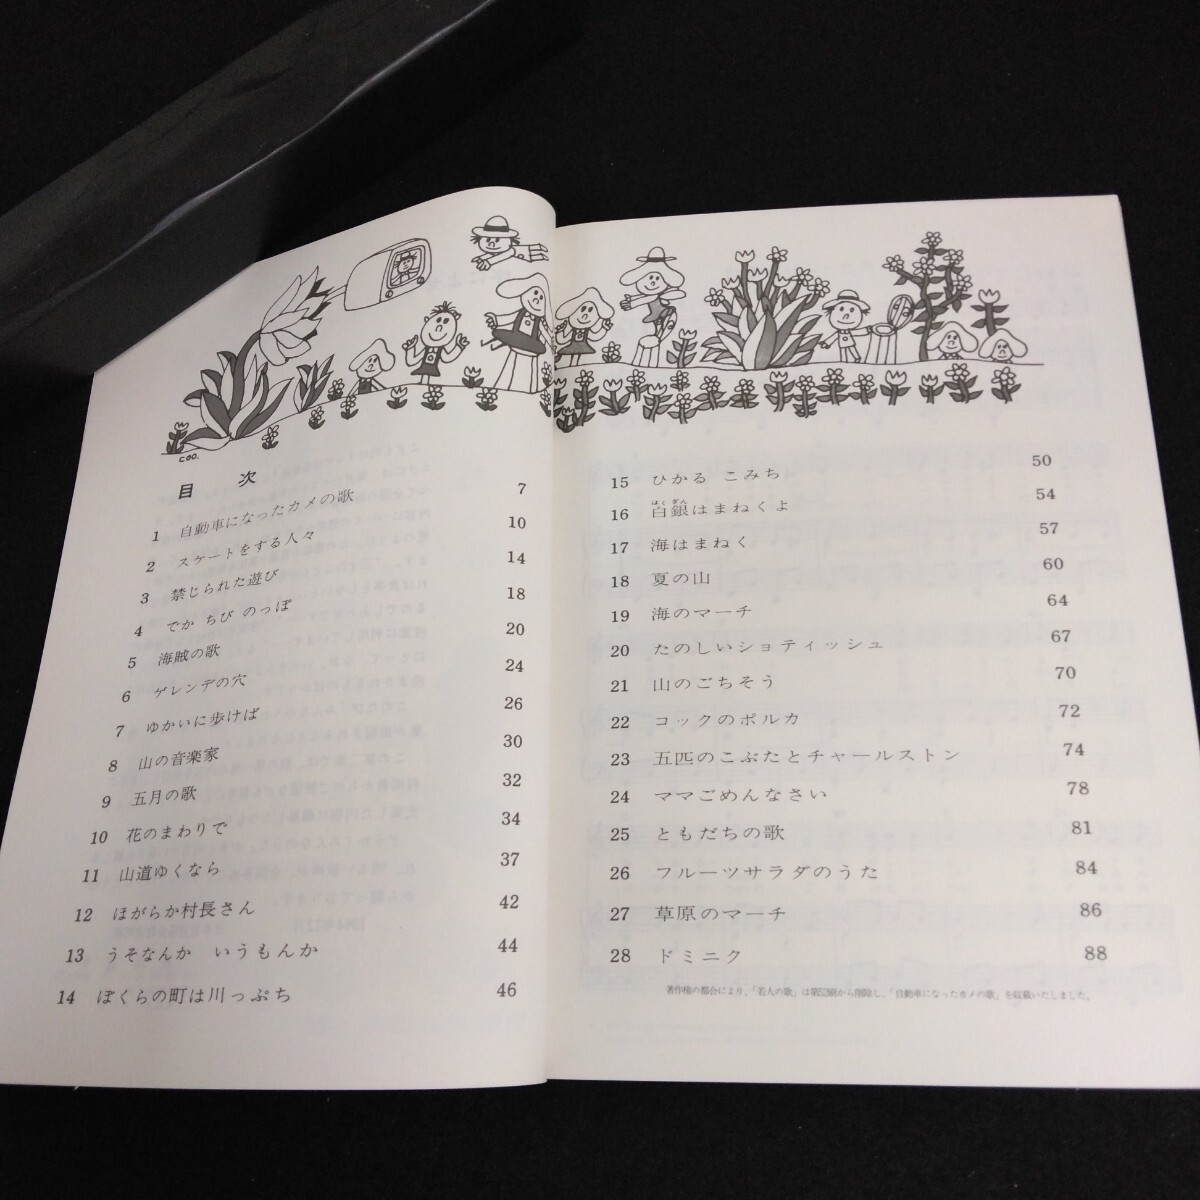 coo.
目 次
1 自動車になったカメの歌 7
2 スケートをする人々 10
3 禁じられた遊び 14
4 でか ちび のっぽ 18
5 海賊の歌 20
6 ゲレンデの穴 24
7 ゆかいに歩けば 26
8 山の音楽家 30
9 五月の歌 32
10 花のまわりで 34
11 山道ゆくなら 37
12 ほがらか村長さん 42
13 うそなんか いうもんか 44
14 ぼくらの町は川っぷち 46
15 ひかる こみち 50
はく ぎん
16 白銀はまねくよ 54
17 海はまねく 57
18 夏の山 60
19 海のマーチ 64
20 たのしいショティッシュ 67
21 山のごちそう 70
22 コックのポルカ 72
23 五匹のこぶたとチャールストン 74
24 ママごめんなさい 78
25 ともだちの歌 81
26 フルーツサラダのうた 84
27 草原のマーチ 86
28 ドミニク 88
著作権の都合により、「若人の歌」は第52刷から削除し、「自動車になったカメの歌」を収載いたしました。